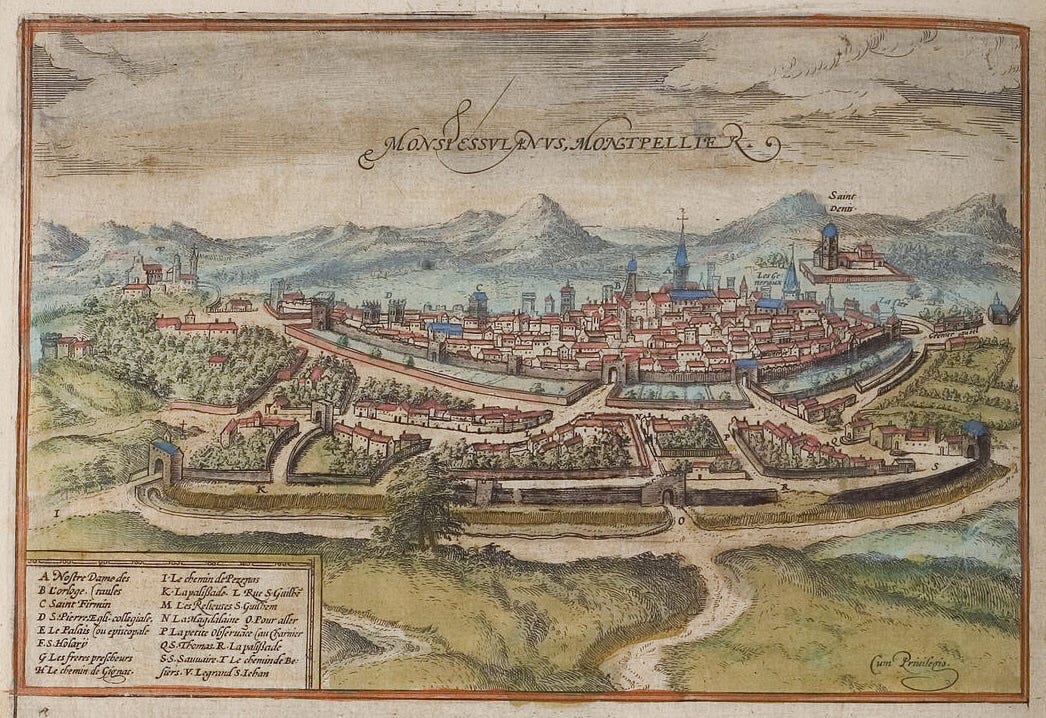 MONSPESSVLANVS, MONTPELLIER.
Saint
Denis
D
C
B
K
I
O
R
S
Q
P
A Nostre Dame des
B L'orloge. (taules
C Saint Firmin
D S. Pierre Egli. collegiale,
E Le Palais (ou episcopale
F. S. Holary
G. Les freres prescheurs
H Le chemin de Gignac.
I. Le chemin de Pezenas
K. La palissade. L Rue S. Guilhē
M Les Relieuses S. Guilhem
N La Magdalaine O. Pour aller
P La petite Observāce (au Charnier
Q S. Thomas. R. La palissade
S S. Sauvaire. T Le chemin de Be-
siers. V. Le grand S. Iehan
Cum Privilegio.